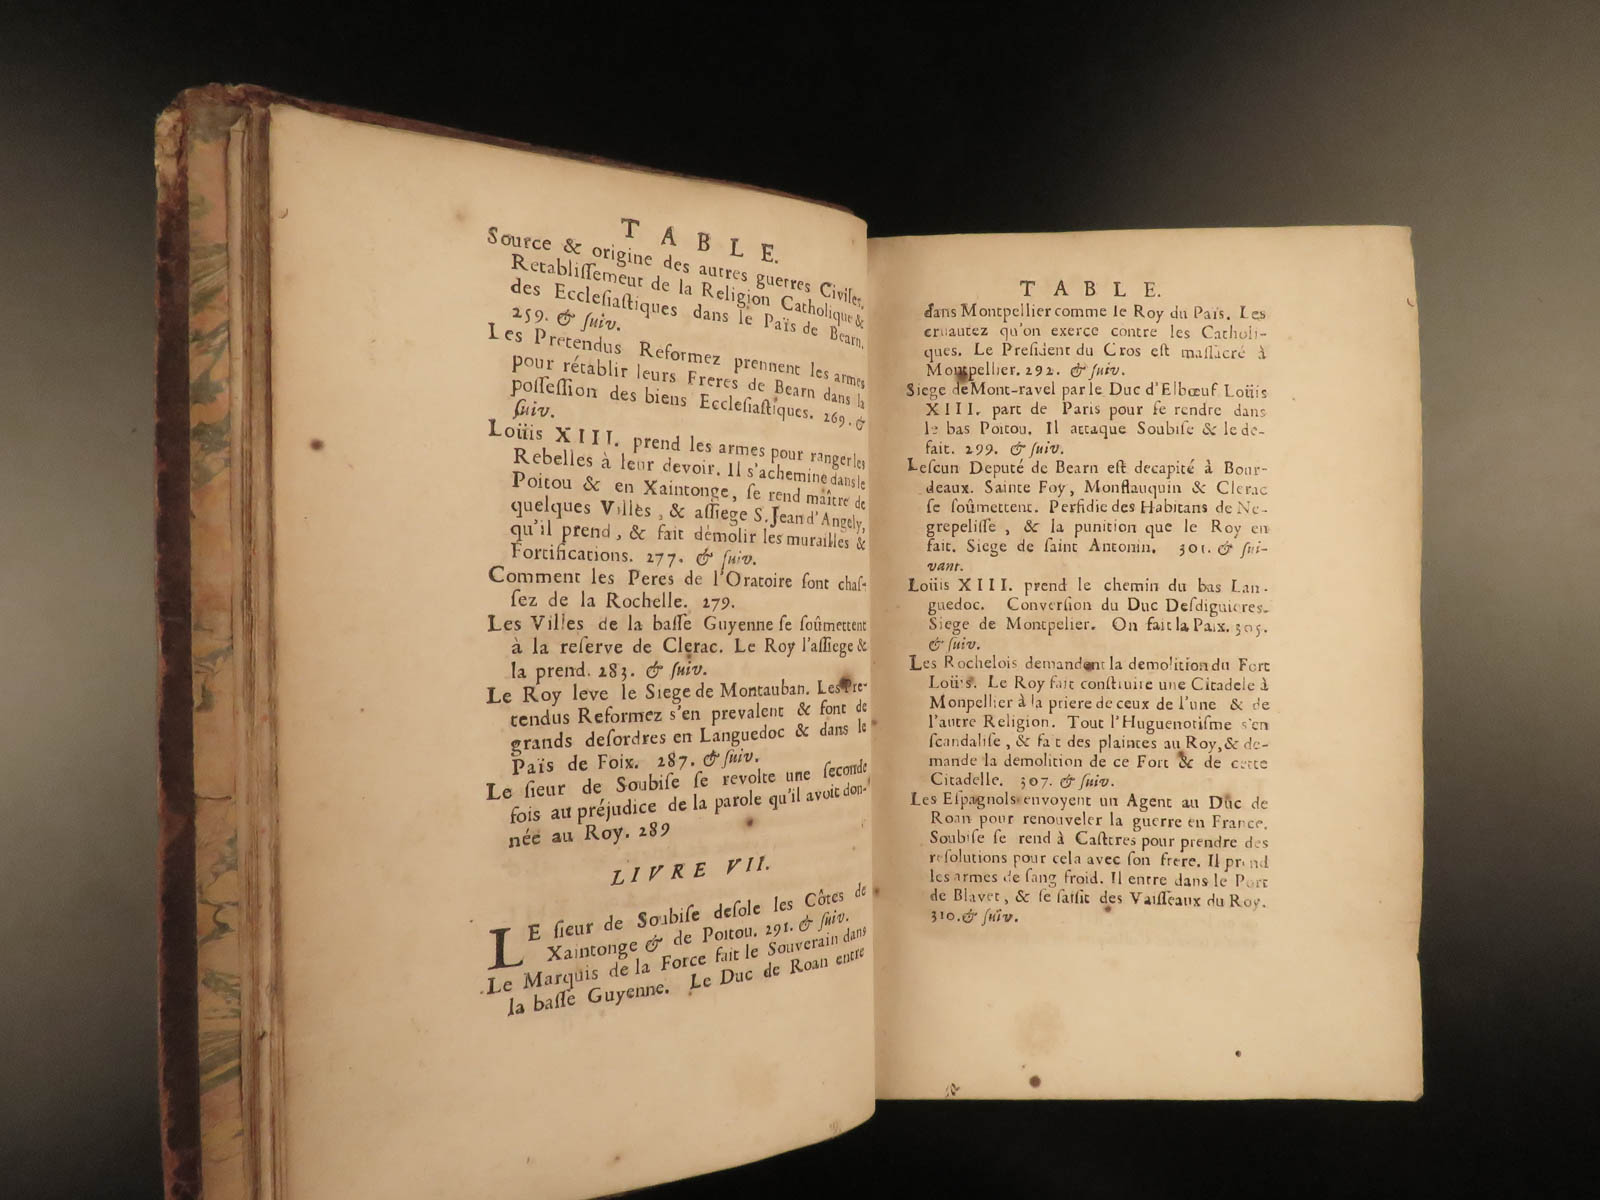 TABLE.
Source & origine des autres guerres Civiles.
Retablissemeut de la Religion Catholique &
des Ecclesiastiques dans le Païs de Bearn.
259. & suiv.
Les Pretendus Reformez prennent les armes
pour rétablir leurs Freres de Bearn dans la
possession des biens Ecclesiastiques. 269. &
suiv.
Loüis XIII. prend les armes pour ranger les
Rebelles à leur devoir. Il s'achemine dans le
Poitou & en Xaintonge, se rend maître de
quelques Villes, & assiege S. Jean d'Angely,
qu'il prend, & fait démolir les murailles &
Fortifications. 277. & suiv.
Comment les Peres de l'Oratoire sont chas-
sez de la Rochelle. 279.
Les Villes de la basse Guyenne se soûmettent
à la reserve de Clerac. Le Roy l'assiege &
la prend. 283. & suiv.
Le Roy leve le Siege de Montauban. Les Pre-
tendus Reformez s'en prevalent & font de
grands desordres en Languedoc & dans le
Païs de Foix. 287. & suiv.
Le sieur de Soubise se revolte une seconde
fois au préjudice de la parole qu'il avoit don-
née au Roy. 289
LIVRE VII.
LE sieur de Soubise desole les Côtes de
Xaintonge & de Poitou. 291. & suiv.
Le Marquis de la Force fait le Souverain dans
la basse Guyenne. Le Duc de Roan entre
TABLE.
dans Montpellier comme le Roy du Païs. Les
cruautez qu'on exerce contre les Catholi-
ques. Le President du Cros est massacré à
Montpellier. 292. & suiv.
Siege de Mont-ravel par le Duc d'Elbœuf. Loüis
XIII. part de Paris pour se rendre dans
le bas Poitou. Il attaque Soubise & le de-
fait. 299. & suiv.
Lescun Deputé de Bearn est decapité à Bour-
deaux. Sainte Foy, Monflauquin & Clerac
se soûmettent. Perfidie des Habitans de Ne-
grepelisse, & la punition que le Roy en
fait. Siege de saint Antonin. 301. & sui-
vant.
Loüis XIII. prend le chemin du bas Lan-
guedoc. Conversion du Duc Desdiguieres.
Siege de Montpelier. On fait la Paix. 305.
& suiv.
Les Rochelois demandent la demolition du Fort
Loüis. Le Roy fait construire une Citadele à
Monpellier à la priere de ceux de l'une & de
l'autre Religion. Tout l'Huguenotisme s'en
scandalise, & fait des plaintes au Roy, & de-
mande la demolition de ce Fort & de cette
Citadelle. 307. & suiv.
Les Espagnols envoyent un Agent au Duc de
Roan pour renouveler la guerre en France.
Soubise se rend à Castres pour prendre des
resolutions pour cela avec son frere. Il prend
les armes de sang froid. Il entre dans le Port
de Blavet, & se saisit des Vaisseaux du Roy.
310. & suiv.